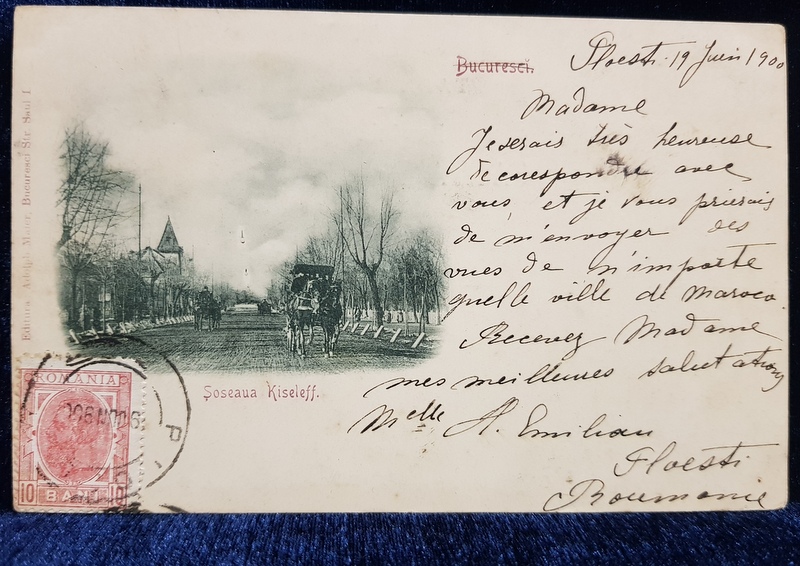 Bucuresci.
Ploesti 19 Juin 1900
Madame
Je serais très heureuse
de corespondre avec
vous, et je vous prierais
de m'envoyer des
vues de n'importe
quelle ville de Maroco.
Recevez Madame
mes meilleures salutations
Melle A. Emilian
Ploesti
Roumanie
Șoseaua Kiseleff.
Editura Adolph Maier, Bucuresci Str. Saul 1.
ROMANIA
10 BANI 10